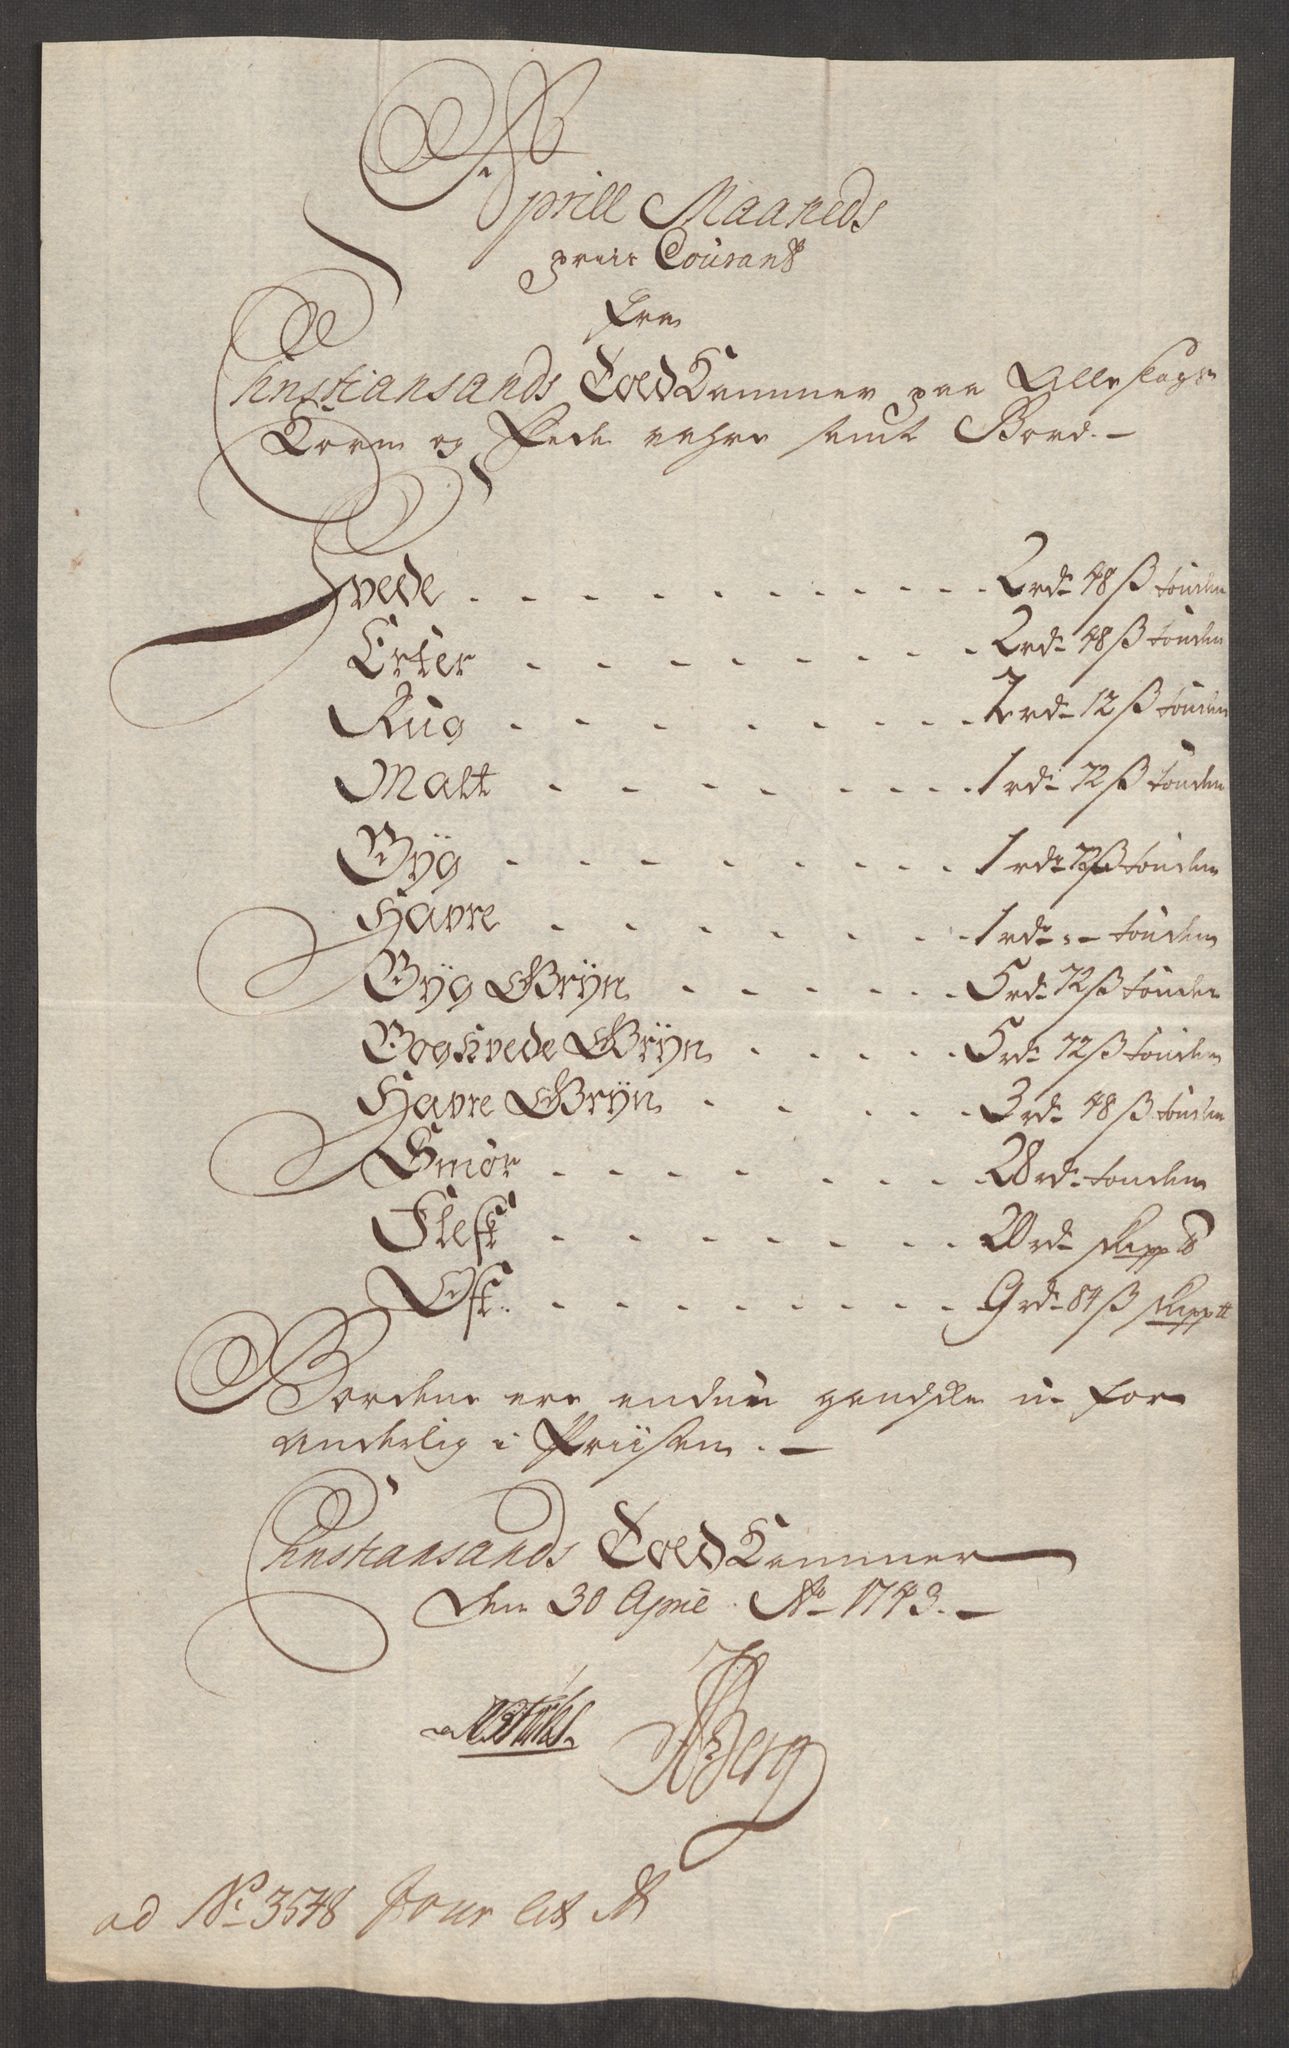 Aprill Maaneds
priis Courant
fra
Christiansands Told Kammer paa Alle slags
Korn og Fede vahre samt Bord. —
Hvede - - - 2 rd. 48 ß tønden
Erter - - - 2 rd. 48 ß tønden
Rug - - - rd. 12 ß tønden
Malt - - - 1 rd. 72 ß tønden
Byg - - - 1 rd. 72 ß tønden
Havre - - - 1 rd. " - tønden
Byg Gryn - - - 5 rd. 72 ß tønden
Boghvede Gryn - - - 5 rd. 72 ß tønden
Havre Gryn - - - 3 rd. 48 ß tønden
Smør - - - 28 rd. tønden
Flesk - - - 20 rd. skipp ℔
Ost - - - 9 rd. 84 ß skipp ℔
Bordene ere endnu gandske u-for
anderlig i Priisen. —
Christiansands Told Kammer
den 30 April Ao 1743. —
Berg
ad No 3548 Jour lit A